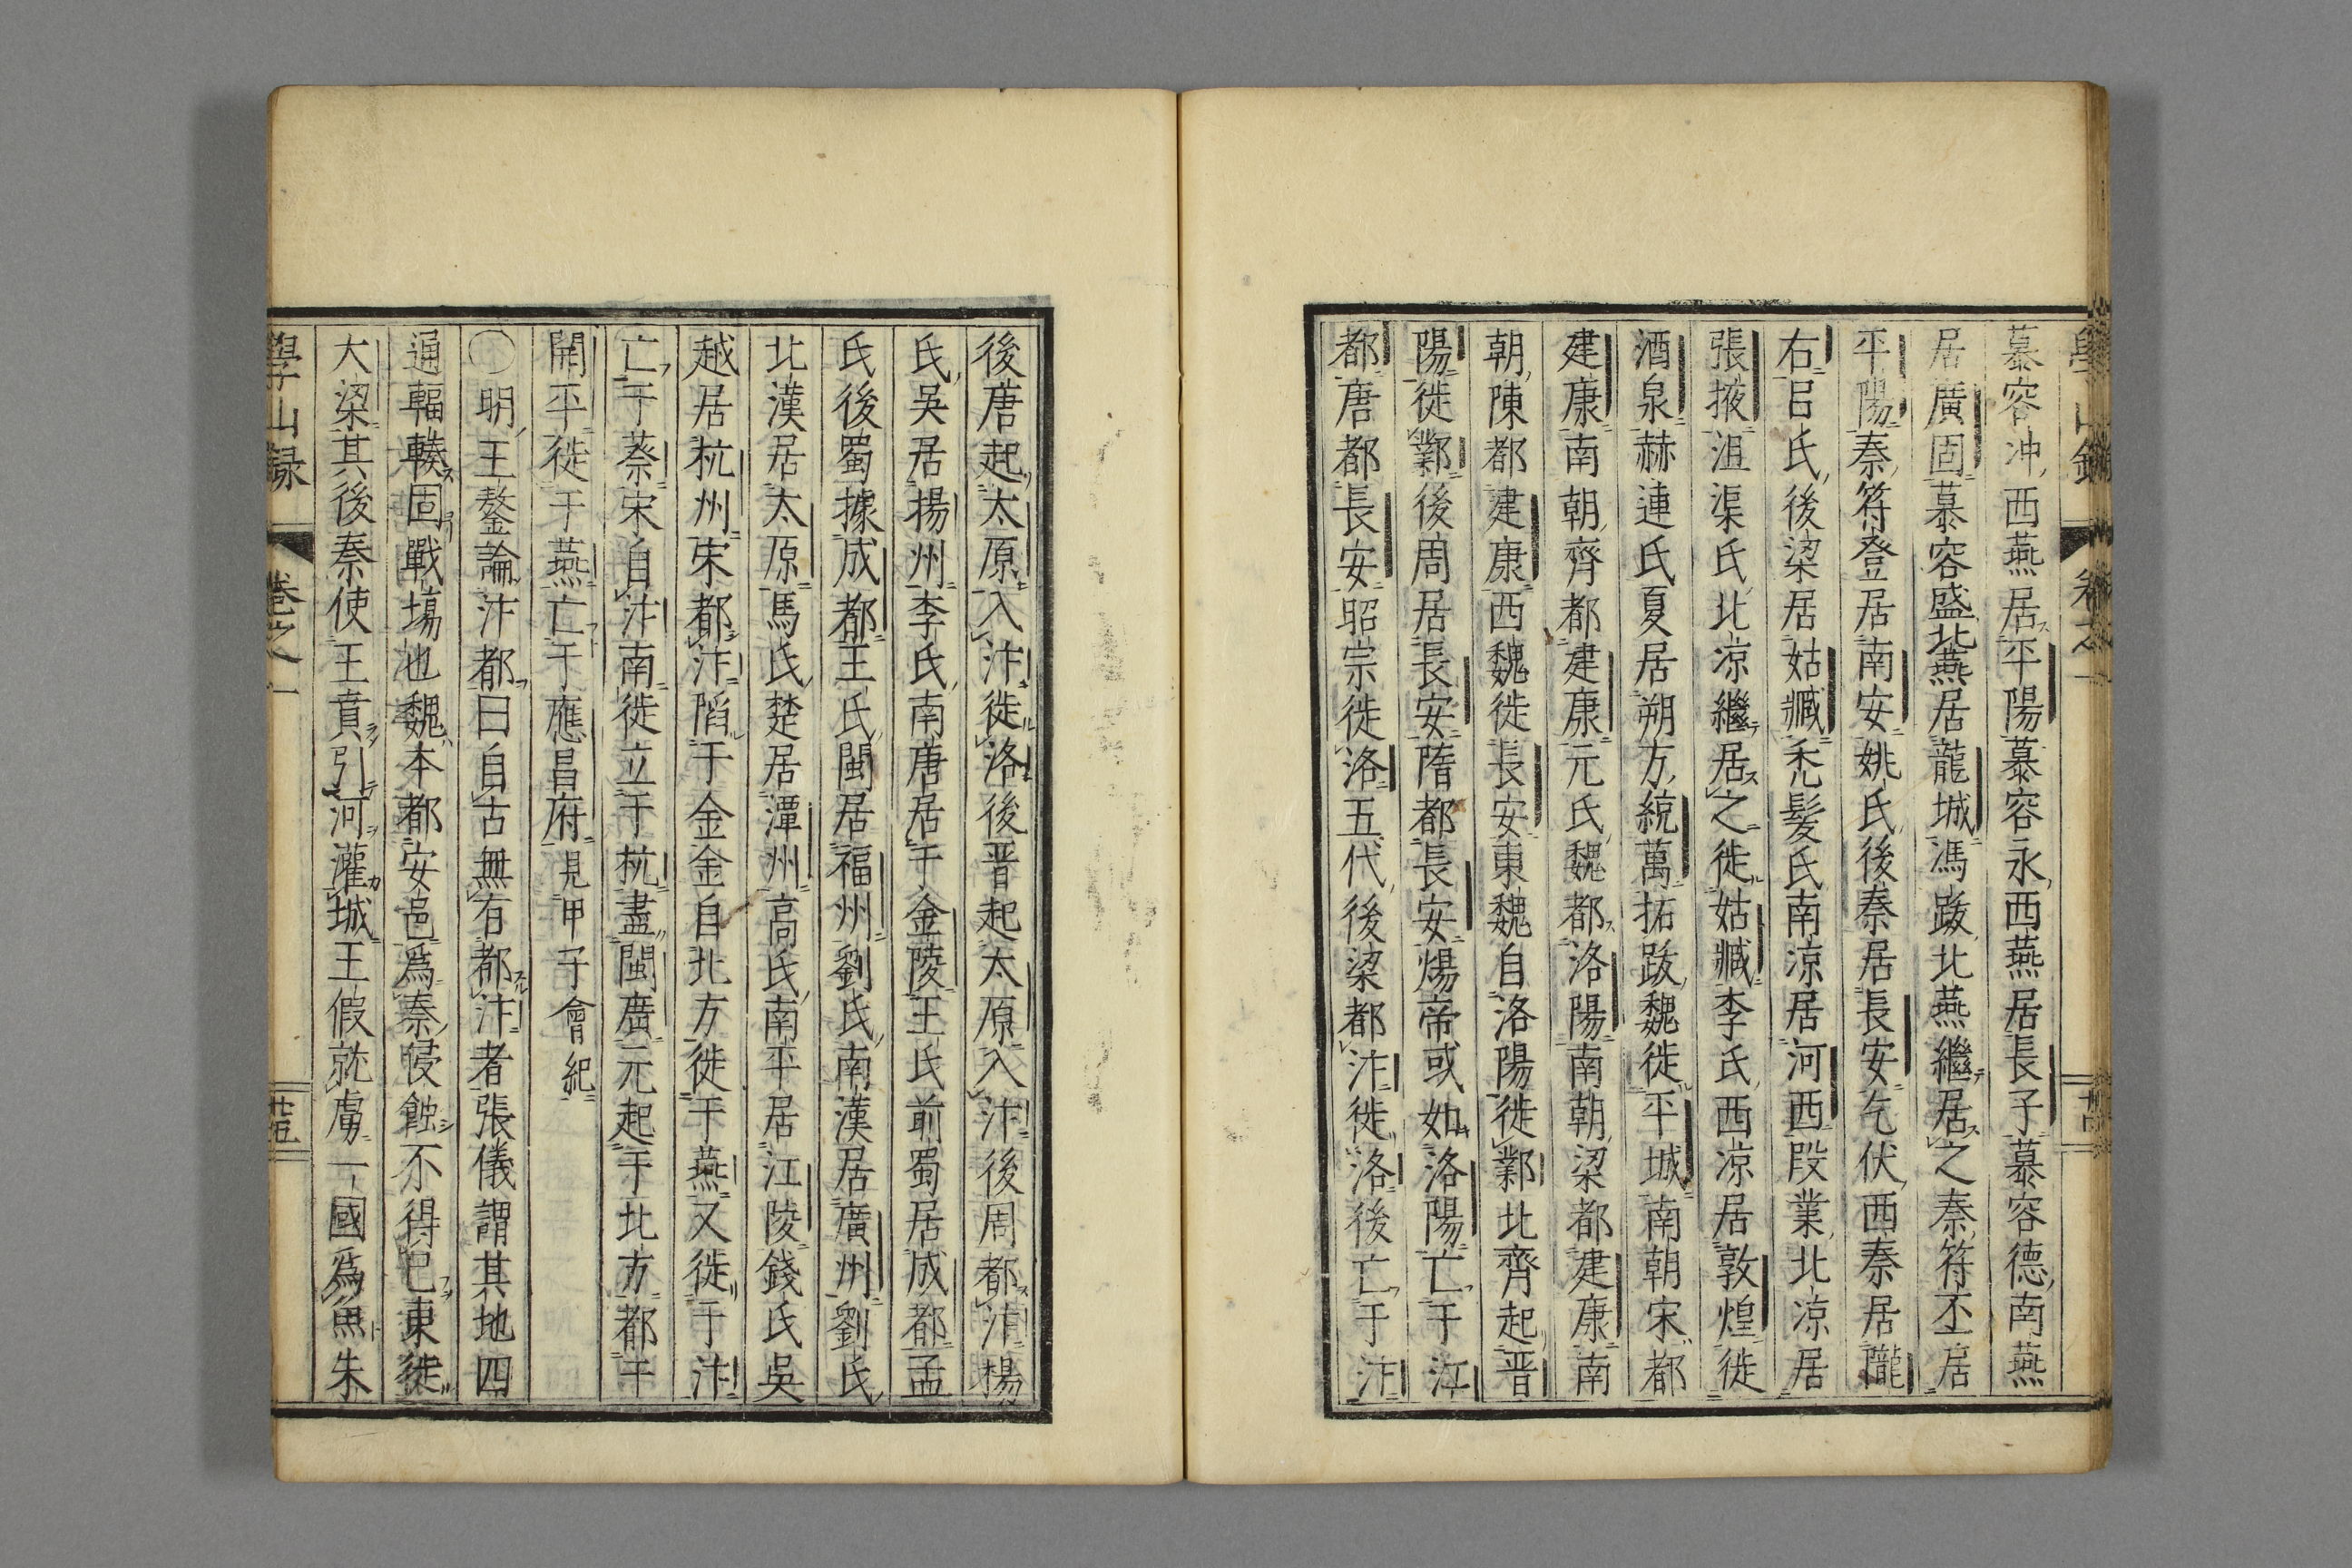 慕容冲西燕居平陽慕容永西燕居長子慕容德南燕
居廣固慕容盛北燕居龍城馮跋北燕繼居之秦符丕居
平陽秦符登居南安姚氏後秦居長安乞伏西秦居隴
右呂氏後梁居姑臧禿髮氏南凉居河西段業北凉居
張掖沮渠氏北凉繼居之徙姑臧李氏西凉居敦煌徙
酒泉赫連氏夏居朔方統萬拓跋魏徙平城南朝宋都
建康南朝齊都建康元氏魏都洛陽南朝梁都建康南
朝陳都建康西魏徙長安東魏自洛陽徙鄴北齊起晋
陽徙鄴後周居長安隋都長安煬帝或如洛陽亡于江
都唐都長安昭宗徙洛五代後梁都汴徙洛後亡于汴
後唐起太原入汴徙洛後晋起太原入汴後周都汴楊
氏吳居揚州李氏南唐居于金陵王氏前蜀居成都孟
氏後蜀據成都王氏閩居福州劉氏南漢居廣州劉氏
北漢居太原馬氏楚居潭州高氏南平居江陵錢氏吳
越居杭州宋都汴陷于金金自北方徙于燕又徙于汴
亡于蔡宋自汴南徙立于杭盡閩廣元起于北方都于
開平徙于燕亡于應昌府見甲子會紀
○明王鏊論汴都曰自古無有都汴者張儀謂其地四
通輻輳固戰塲也魏本都安邑爲秦侵蝕不得已東徙
大梁其後秦使王賁引河灌城王假就虜一國爲魚朱
學山録 卷之一 廿五